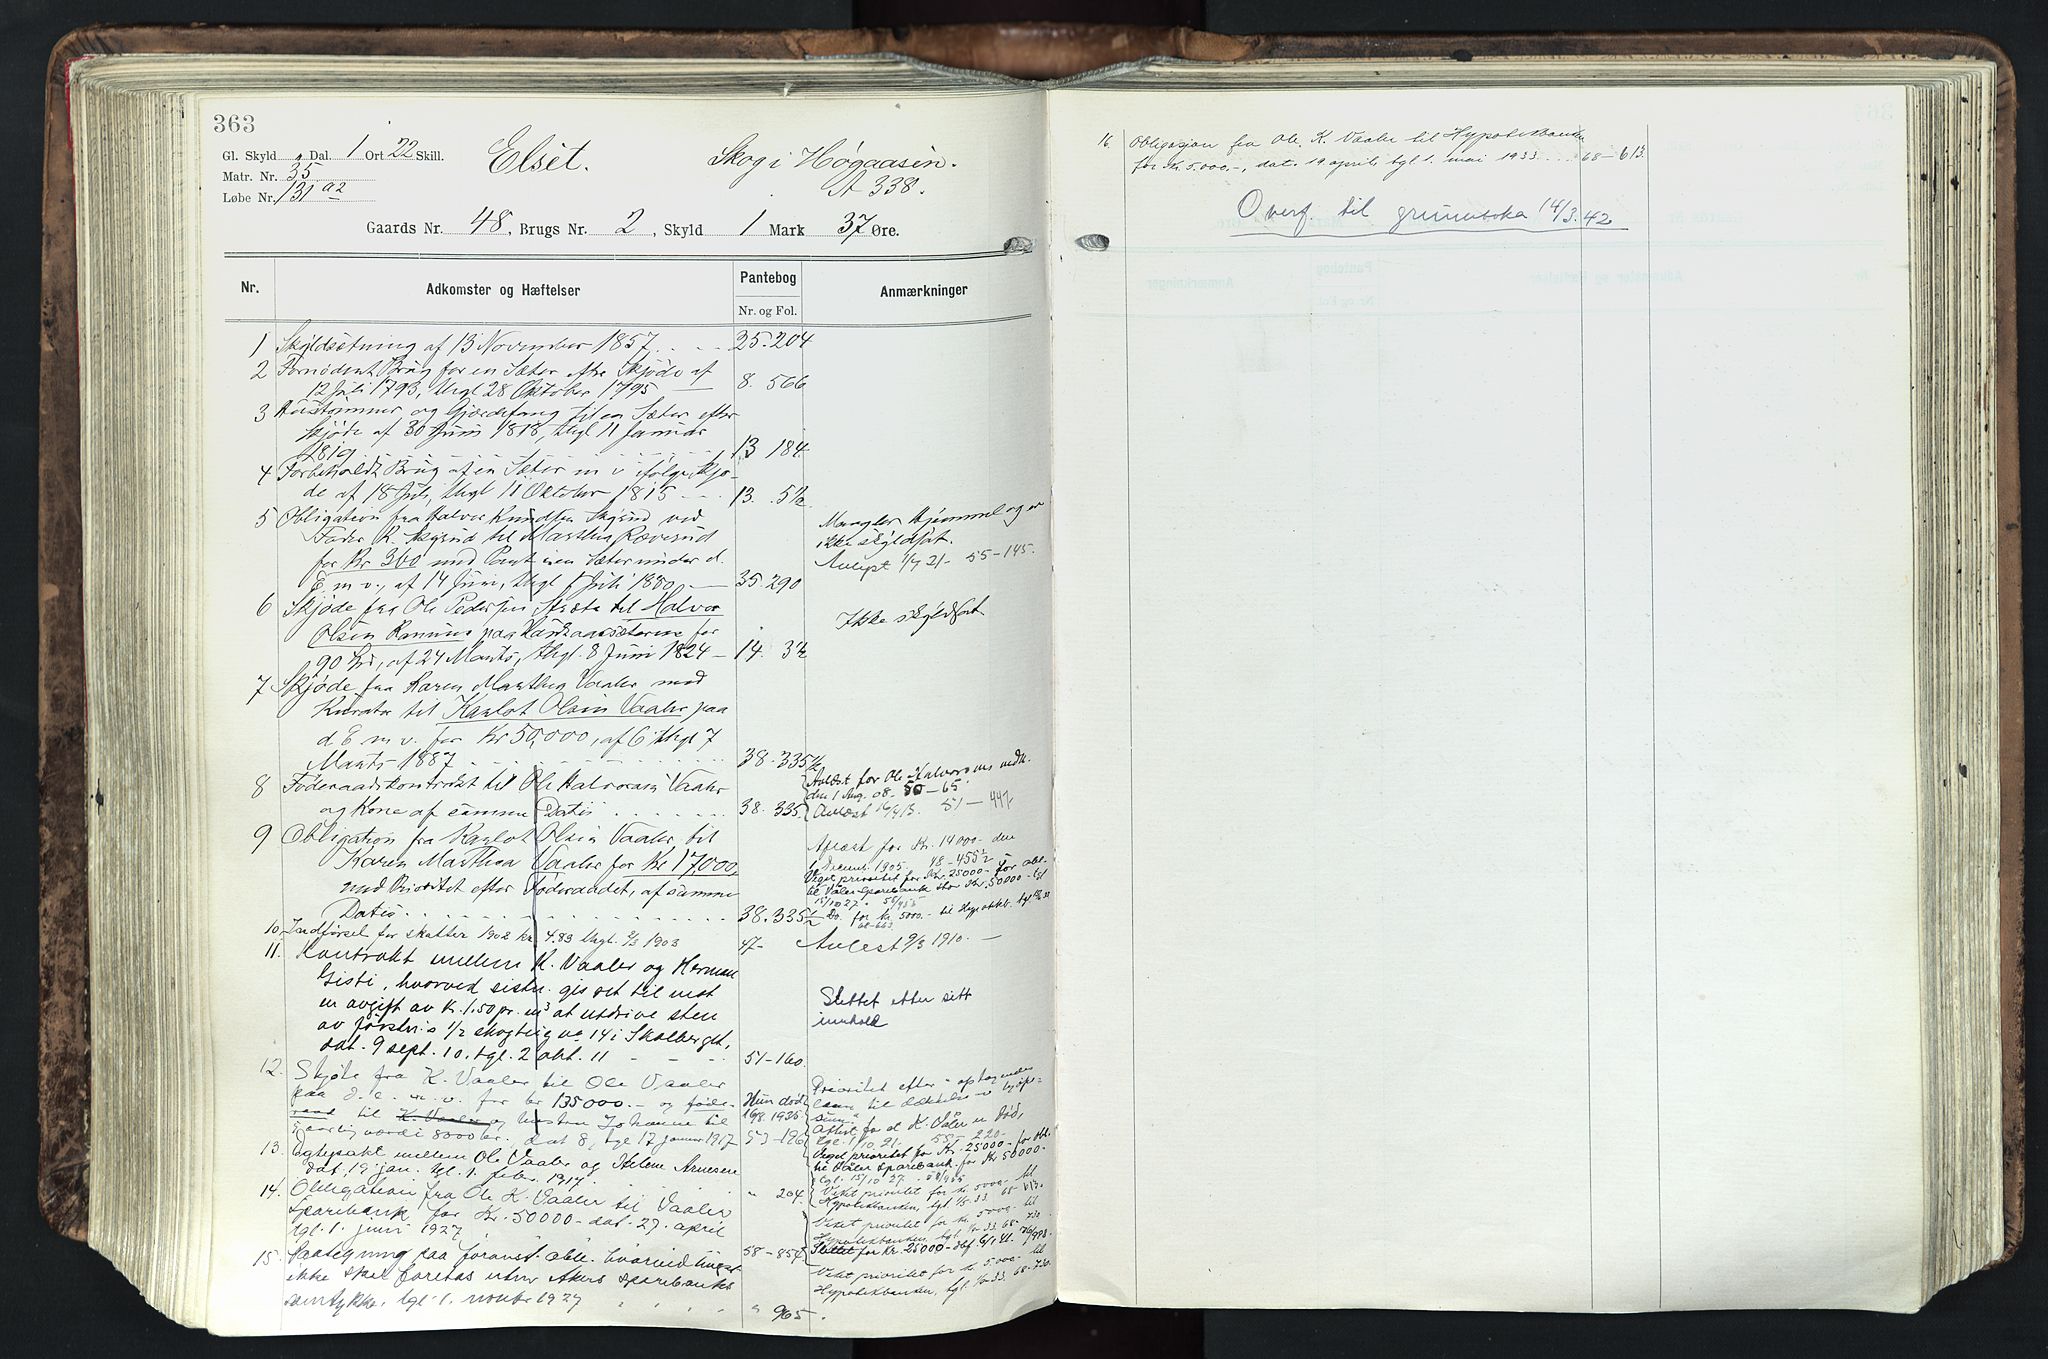 363
Gl. Skyld Dal. 1 Ort 22 Skill.
Matr. Nr. 35
Løbe Nr. 131 a2
Elset. Skog i Høgaasen.
A 338.
Gaards Nr. 48, Brugs Nr. 2, Skyld 1 Mark 37 Øre.
Nr. Adkomster og Hæftelser Pantebog Anmærkninger
Nr. og Fol.
1 Skyldsætning af 13 November 1857 . . . 25. 204
2 Fornødent Brug for en Sæter efter Skjøde af
12 Juli 1793, thgl 28 Oktober 1795 8. 566
3 og Gjærdefang til en Sæter efter
Skjøde af 30 Juni 1818, thgl 11 Januar
1819 13 184
4 Forbeholdt Brug af en Sæter m v ifølge Skjø-
de af 18 Juli, thgl 11 Oktober 1815 13. 5 1/2
5 Obligation fra Halvor Knudsen Skjsrud ved
Fader K. til Marthea Røverud
for Kr 360 med Pant i en Sæter under d.
E. m v., af 14 Juni, thgl 1 Juli 1880 35. 290
Mangler Hjemmel og er
ikke skyldsat.
Avlyst 1/7 21 - 55-145.
6 Skjøde fra Ole Pedersen til Halvor
Olsen paa for
90 af 24 Marts, thgl. 8 Juni 1824 14. 3 1/2
Ikke skyldsat
7 Skjøde fra Karen Marthea Vaaler med
Kurator til Karlot Olsen Vaaler paa
d. E. m. v. for Kr 50,000, af 6 thgl 7
Marts 1887 38. 335 1/2
8 Føderaadskontrakt til Ole Halvorsen Vaaler
og Kone af samme Datis . . . . . . 38. 335.
Avlæst for Ole Halvorsens vedk.
den 1 Aug. 08. 50-65.
Avlæst 16/4 13. 51-447
9 Obligation fra Karlot Olsen Vaaler til
Karen Marthea Vaaler for Kr 17,000,
med Prioritet efter Føderaadet, af samme
Datis 38. 335 1/2
Aflæst for Kr. 14000 - den
1 Decemb. 1905. 48-455 1/2
Veget prioritet for Kr. 25000 - for obl.
til Våler Sparebank stor Kr. 50000 - tgl
15/10 27.
Do. for kr. 5000.- til Hypotekb. tgl
10. Indførsel for skatter 1902 kr. 4.83 thgl. 2/3 1903 47- Avlest 9/3 1910.
11. Kontrakt mellem K. Vaaler og Herman
Gisti, hvorved sistn. gis ret til mot
en avgift av Kr. 1.50 pr. m3 at utdrive sten
av førstn.s 1/2 skogteig no 14 i Skolberget,
dat. 9 sept. 10, tgl. 2 okt. 11 - - - 51-160.
Slettet efter sitt
innhold
12. Skjøte fra K. Vaaler til Ole Vaaler
paa d. e. m. v. for kr 135000.- og føde-
raad til K. Vaaler og hustru Johanne til
5 aarlig værdi 8000 kr. dat 8, tgl 17 januar 1917 53-196
Hun død
16/8. 1935
Prioritet efter
laan til
Attest for at K. Våler er død,
tgl. 1/10 21. 55-220-
Veget prioritet for Kr. 25000 - for obl.
til Våler Sparebank for Kr 50000-
tgl. 15/10 27.
13. Egtepakt mellem Ole Vaaler og Helene Arnesen
dat. 19 jan. tgl. 1. febr. 1917. " 204.
Veket prioritet for kr. 5000 til
Hypotekbanken, tgl. 1/5 33. 68-613.
14. Obligation fra Ole K. Vaaler til Vaaler
Sparebank for Kr. 50000 - dat. 27. april
tgl. 1. juni 1927 58-854
Veket prioritet for kr 5000- til
Hypotekbanken, tgl. 33. 68-730
Slettet for Kr. 25000-
15. Paategning paa foranst. obl. hvorved
ikke skal foretas uten Akers Sparebanks
samtykke, tgl. 1. novbr 1927 " 965.
Veket prioritet for kr 5.000- til
Hypotekbanken, tgl 33. 68-730.
16. Obligasjon fra Ole K. Vaaler til Hypotekbanken
for Kr. 5.000.-, dat. 19 april, tgl 1. mai 1933 . . . 68-613.
Overf. til grunnboka 14/3. 42